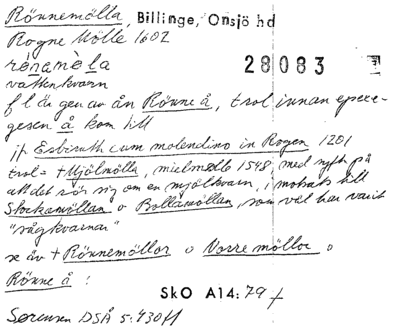 Rönnemölla, Billinge, Onsjö hd
Rogne Mölle 1602
28083
vattenkvarn
fl då gen av ån Rönne å, trol innan epexe-
gesen å kom till
jfr Esberuth cum molendino in Rogen 1201
trol = †Mjölmölla, mielmølle 1548, med syft på
att det rör sig om en mjölkvarn, i motsats till
Stockamöllan o Bollamöllan, som väl har varit
"sågkvarnar"
se äv † Rönnemöllor o Norremöllor o
Rönne å :
SkO A14: 79 f
Sørensen DSÅ 5:430 ff